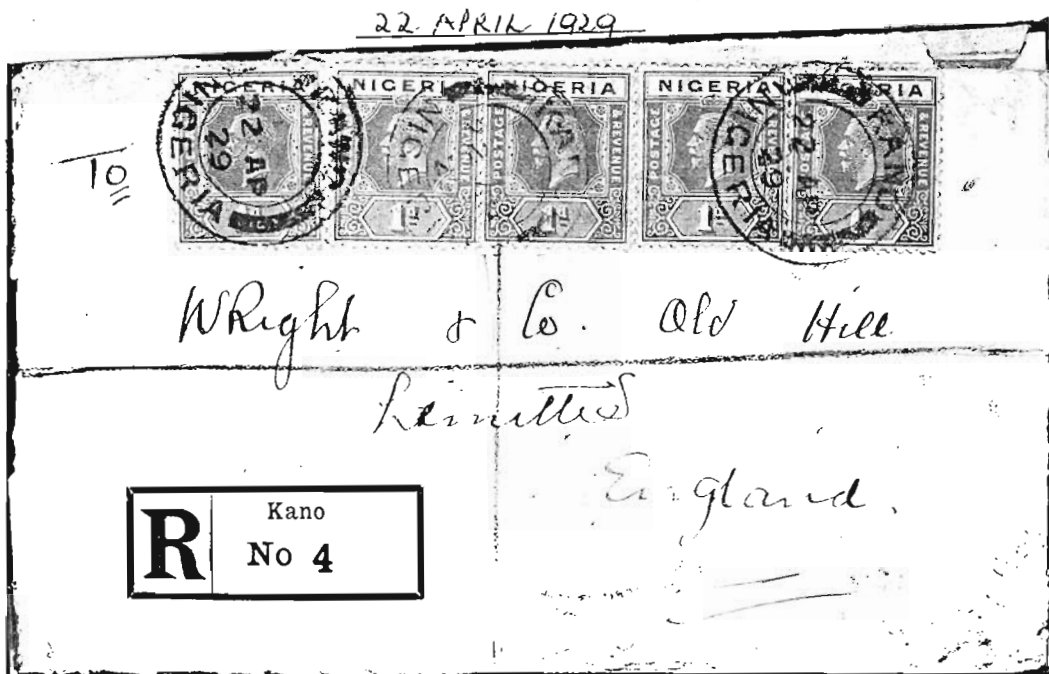 22 APRIL 1929
NIGERIA NIGERIA NIGERIA NIGERIA NIGERIA
POSTAGE & REVENUE
1D 1D 1D 1D 1D
KANO
22 AP
29
NIGERIA
KANO
22 AP
29
NIGERIA
10
WRight & Co. Old Hill
Limitted
England.
R Kano
No 4